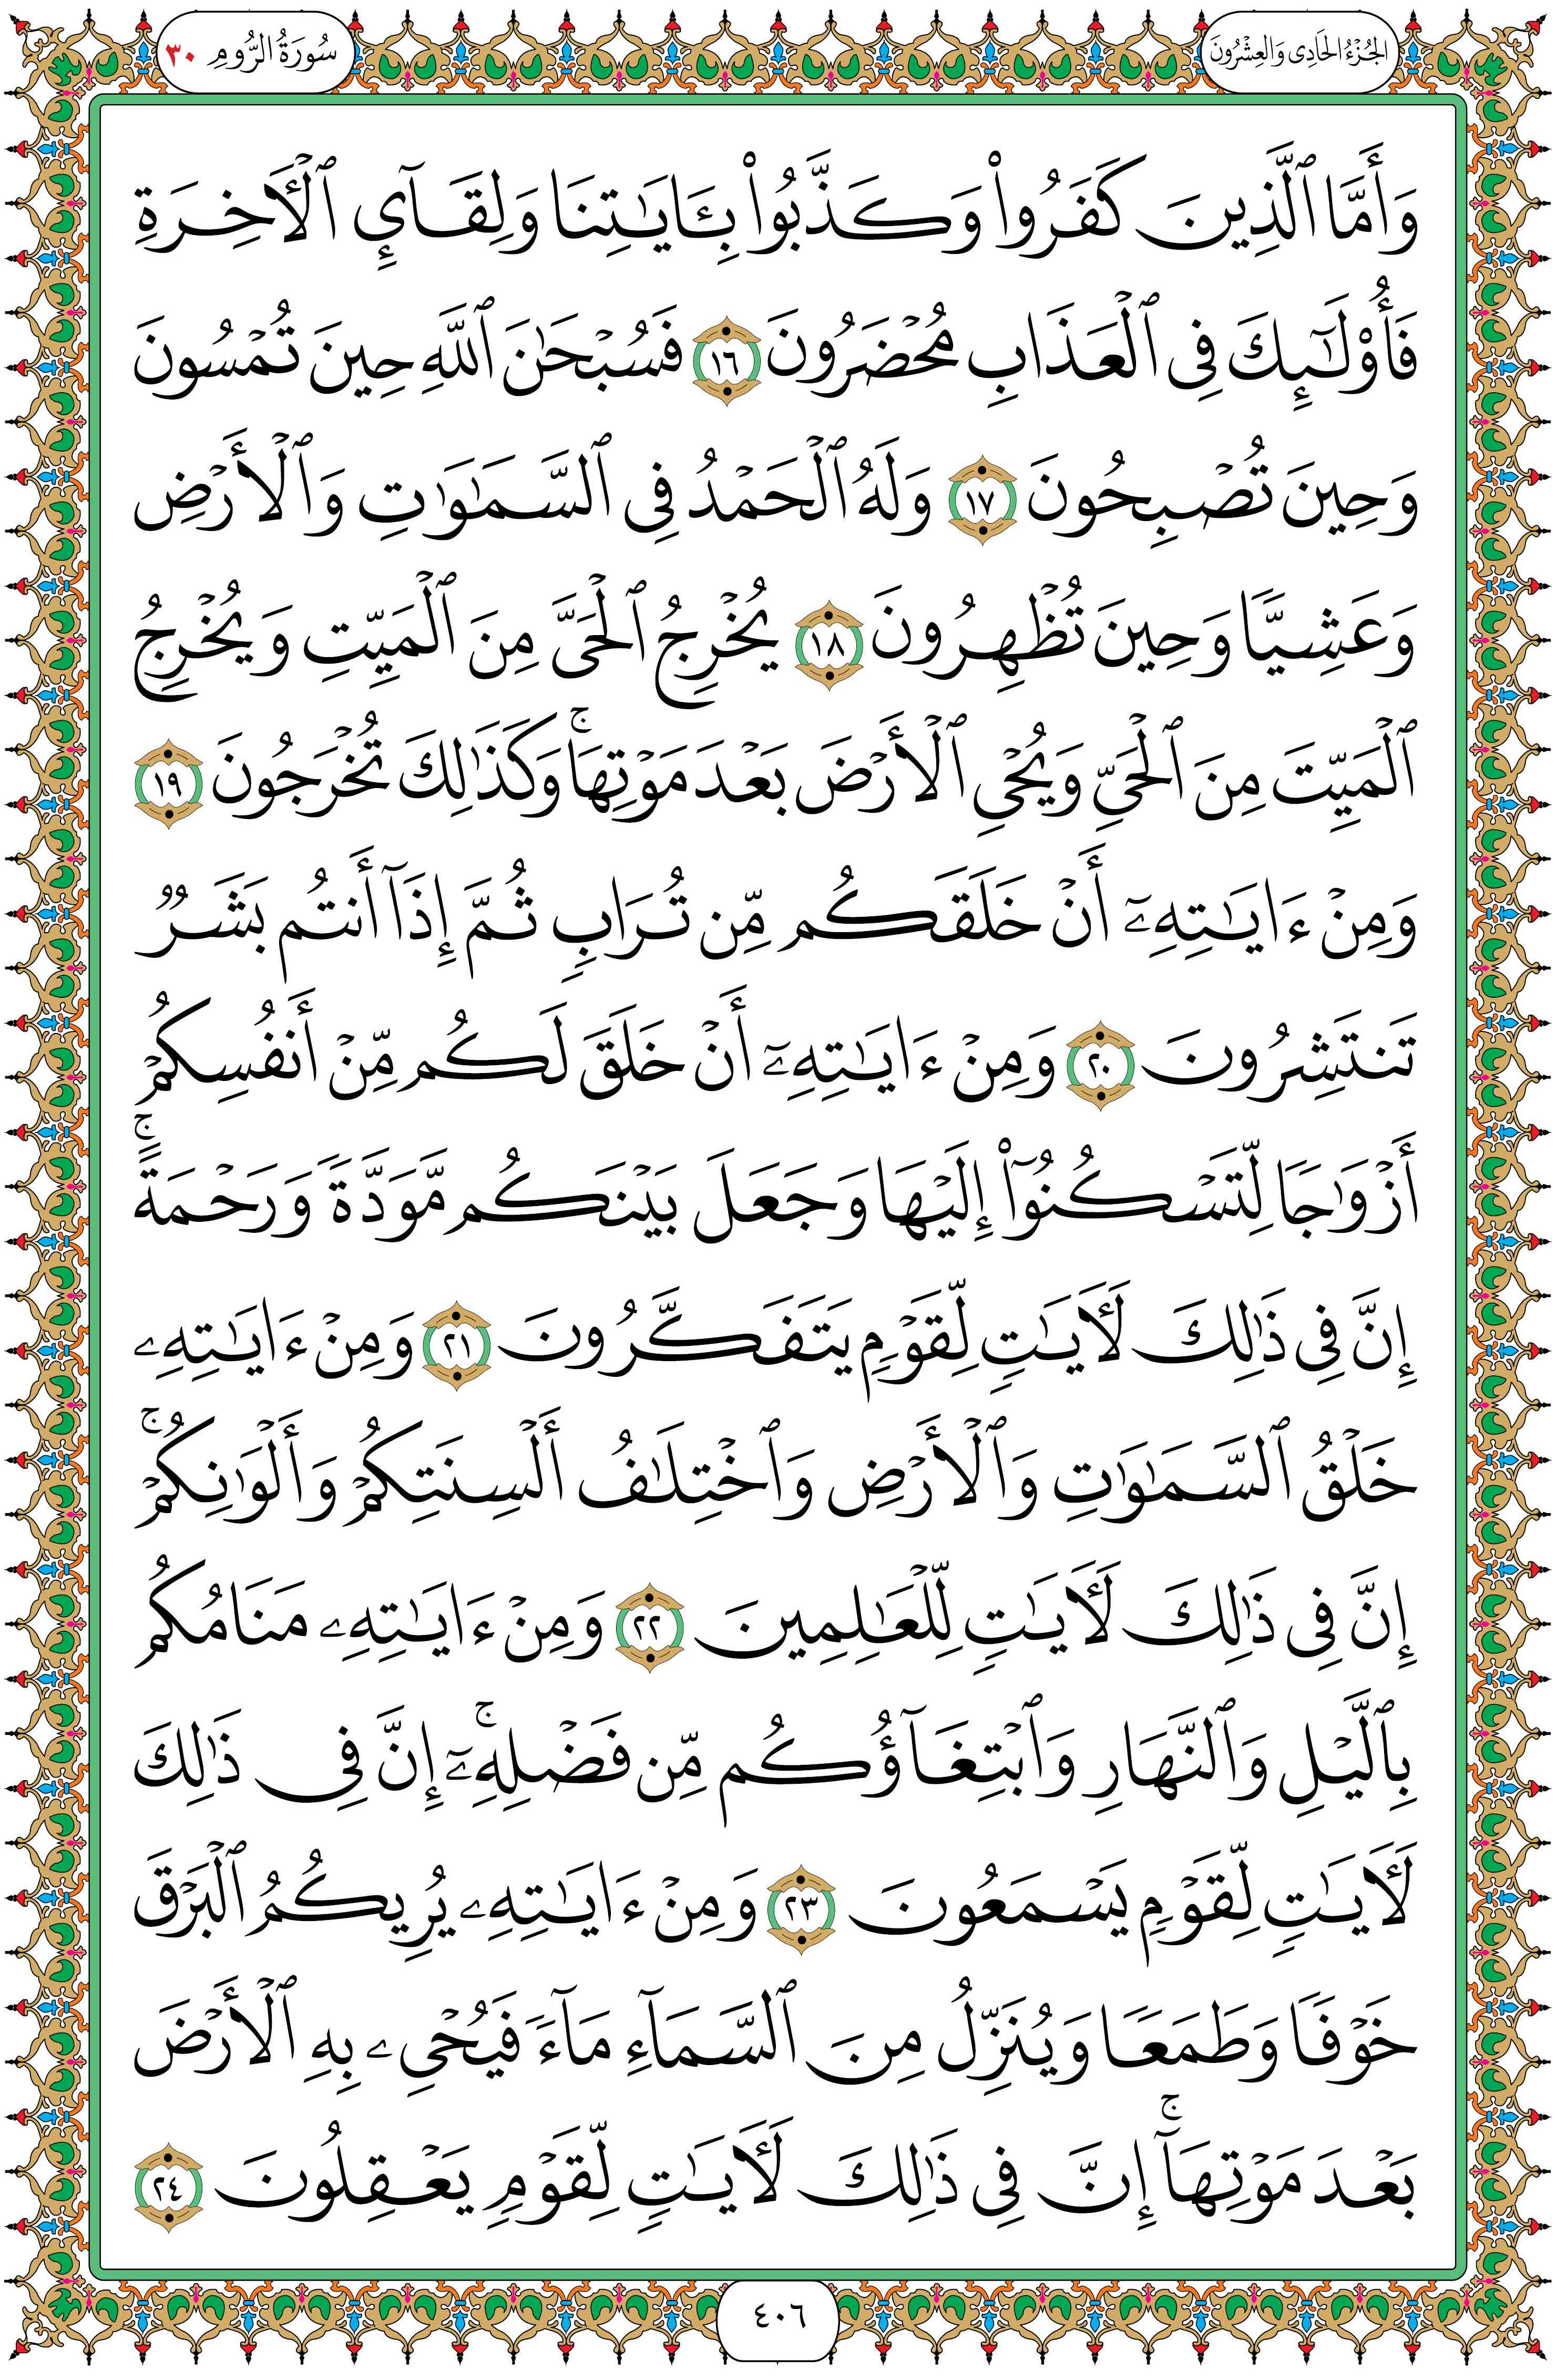 الجُزْءُ الحَادِى وَالعِشْرُونَ
سُورَةُ الرُّومِ ٣٠
وَأَمَّا ٱلَّذِينَ كَفَرُوا۟ وَكَذَّبُوا۟ بِـَٔايَـٰتِنَا وَلِقَآئِ ٱلْـَٔاخِرَةِ
فَأُو۟لَـٰٓئِكَ فِى ٱلْعَذَابِ مُحْضَرُونَ ١٦ فَسُبْحَـٰنَ ٱللَّهِ حِينَ تُمْسُونَ
وَحِينَ تُصْبِحُونَ ١٧ وَلَهُ ٱلْحَمْدُ فِى ٱلسَّمَـٰوَٰتِ وَٱلْأَرْضِ
وَعَشِيًّا وَحِينَ تُظْهِرُونَ ١٨ يُخْرِجُ ٱلْحَىَّ مِنَ ٱلْمَيِّتِ وَيُخْرِجُ
ٱلْمَيِّتَ مِنَ ٱلْحَىِّ وَيُحْىِ ٱلْأَرْضَ بَعْدَ مَوْتِهَا ۚ وَكَذَٰلِكَ تُخْرَجُونَ ١٩
وَمِنْ ءَايَـٰتِهِۦٓ أَنْ خَلَقَكُم مِّن تُرَابٍ ثُمَّ إِذَآ أَنتُم بَشَرٌ
تَنتَشِرُونَ ٢٠ وَمِنْ ءَايَـٰتِهِۦٓ أَنْ خَلَقَ لَكُم مِّنْ أَنفُسِكُمْ
أَزْوَٰجًا لِّتَسْكُنُوٓا۟ إِلَيْهَا وَجَعَلَ بَيْنَكُم مَّوَدَّةً وَرَحْمَةً ۚ
إِنَّ فِى ذَٰلِكَ لَـَٔايَـٰتٍ لِّقَوْمٍ يَتَفَكَّرُونَ ٢١ وَمِنْ ءَايَـٰتِهِۦ
خَلْقُ ٱلسَّمَـٰوَٰتِ وَٱلْأَرْضِ وَٱخْتِلَـٰفُ أَلْسِنَتِكُمْ وَأَلْوَٰنِكُمْ ۚ
إِنَّ فِى ذَٰلِكَ لَـَٔايَـٰتٍ لِّلْعَـٰلِمِينَ ٢٢ وَمِنْ ءَايَـٰتِهِۦ مَنَامُكُم
بِٱلَّيْلِ وَٱلنَّهَارِ وَٱبْتِغَآؤُكُم مِّن فَضْلِهِۦٓ ۚ إِنَّ فِى ذَٰلِكَ
لَـَٔايَـٰتٍ لِّقَوْمٍ يَسْمَعُونَ ٢٣ وَمِنْ ءَايَـٰتِهِۦ يُرِيكُمُ ٱلْبَرْقَ
خَوْفًا وَطَمَعًا وَيُنَزِّلُ مِنَ ٱلسَّمَآءِ مَآءً فَيُحْىِۦ بِهِ ٱلْأَرْضَ
بَعْدَ مَوْتِهَآ ۚ إِنَّ فِى ذَٰلِكَ لَـَٔايَـٰتٍ لِّقَوْمٍ يَعْقِلُونَ ٢٤
٤٠٦